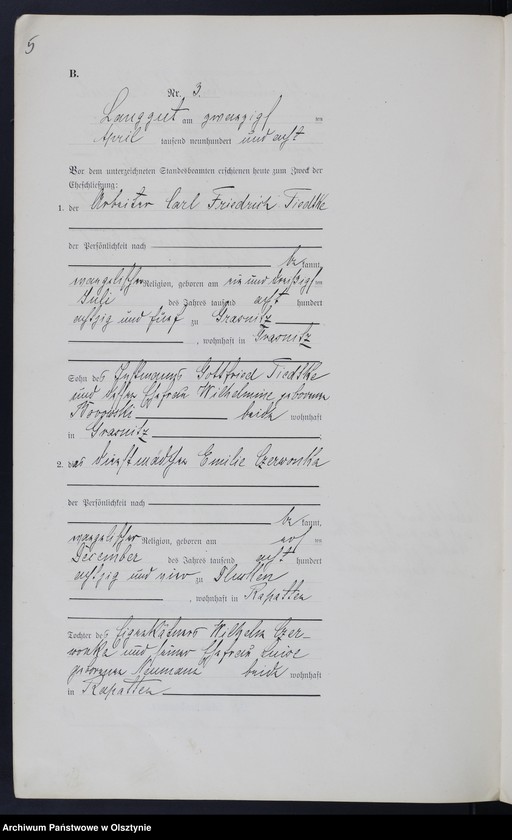 5
B.
Nr. 3.
Langgut am zwanzigsten
April tausend neunhundert und acht
Vor dem unterzeichneten Standesbeamten erschienen heute zum Zweck der
Eheschließung:
1. der Arbeiter Carl Friedrich Tiedtke
der Persönlichkeit nach
be kannt,
evangelischer Religion, geboren am ein und dreißigsten
Juli des Jahres tausend acht hundert
achtzig und fünf zu Grasnitz
, wohnhaft in Grasnitz
Sohn des Gottfried Tiedtke
und dessen Ehefrau Wilhelmine geborenen
beide wohnhaft
in Grasnitz
2. die Dienstmädchen Emilie Czerwonka
der Persönlichkeit nach
be kannt,
evangelischer Religion, geboren am
Dezember des Jahres tausend acht hundert
achtzig und vier zu
, wohnhaft in Rapatten
Tochter des Eigenkätners Wilhelm Czer-
wonka und seiner Ehefrau Luise
geborenen Neumann beide wohnhaft
in Rapatten
Archiwum Państwowe w Olsztynie